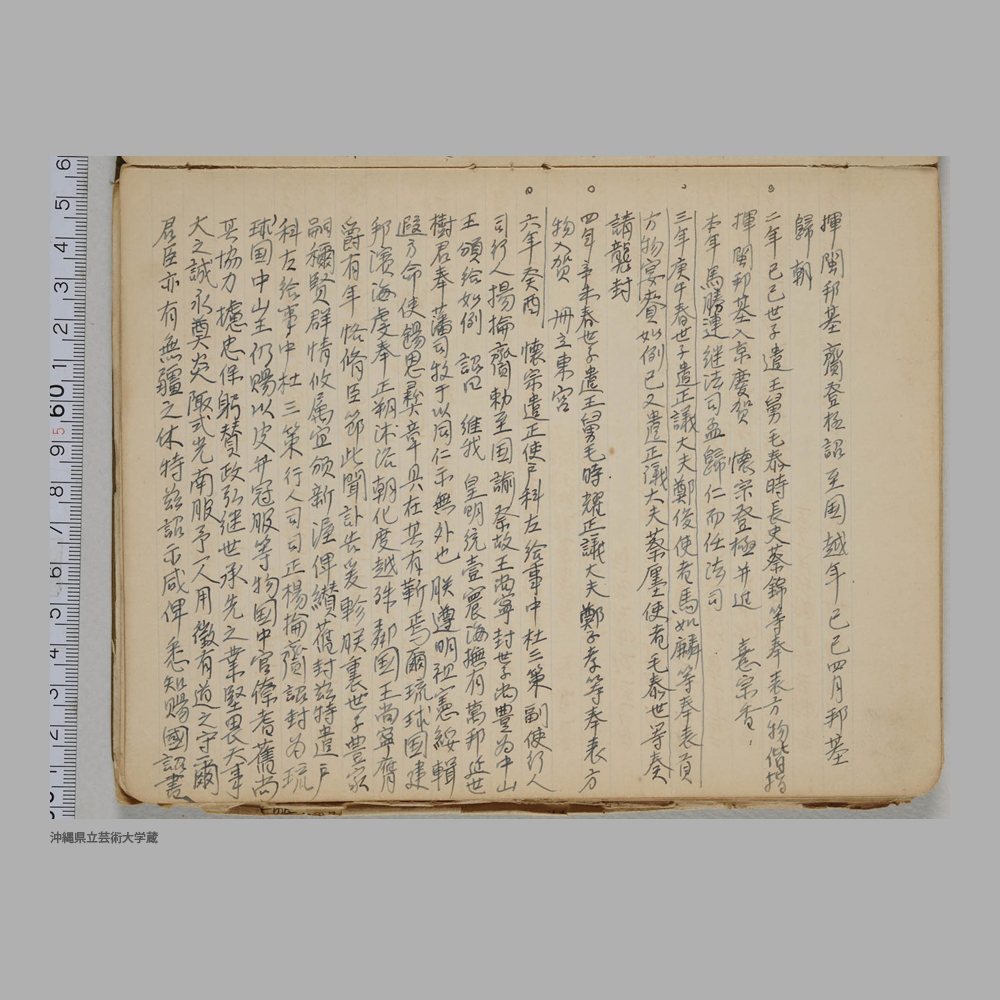 揮閩邦基齎登極詔至国越年己巳四月邦基
歸朝
二年己巳世子遣王舅毛泰時長史蔡錦等奉表方物偕指
揮閩邦基入京慶賀 懷宗登極并進 熹宗香
本年馬勝連継法司孟歸仁而任法司
三年庚午春世子遣正議大夫鄭俊使者馬如麟等奉表貢
方物宴賚如例已又遣正議大夫蔡廛使者毛泰世等奏
請襲封
四年辛未春世子遣王舅毛時耀正議大夫鄭子孝等奉表方
物入賀 冊立東宮
六年癸酉 懷宗遣正使戸科左給事中杜三策副使行人
司行人揚掄齎勅至国諭祭故王尚寧封世子尚豊為中山
王頒給如例 詔曰 維我 皇明統壹寰海撫有萬邦延世
樹君奉藩司牧于以同仁示無外也朕遵明祖憲綏輯
遐方命使錫恩彛章具在其有靳焉爾琉球国建
邦濱海虔奉正朔沐浴朝化度越殊鄰国王尚寧膺
爵有年恪脩臣節此聞訃告爰軫朕裏世子豊家
嗣稱賢群情攸属宜頒新渥俾纉舊封茲特遣戸
科左給事中杜三策行人司司正楊掄齎詔封為琉
球国中山王仍賜以皮弁冠服等物国中官僚耆舊尚
其協力攄忠保躬賛政弘継世承先之業堅畏天事
大之誠永奠炎陬式光南服予一人用徽有道之守爾
君臣亦有無疆之休特茲詔示咸俾悉知賜國詔書
6 5 4 3 2 1 60 9 8 7 6 5 4 3 2 1
沖縄県立芸術大学蔵